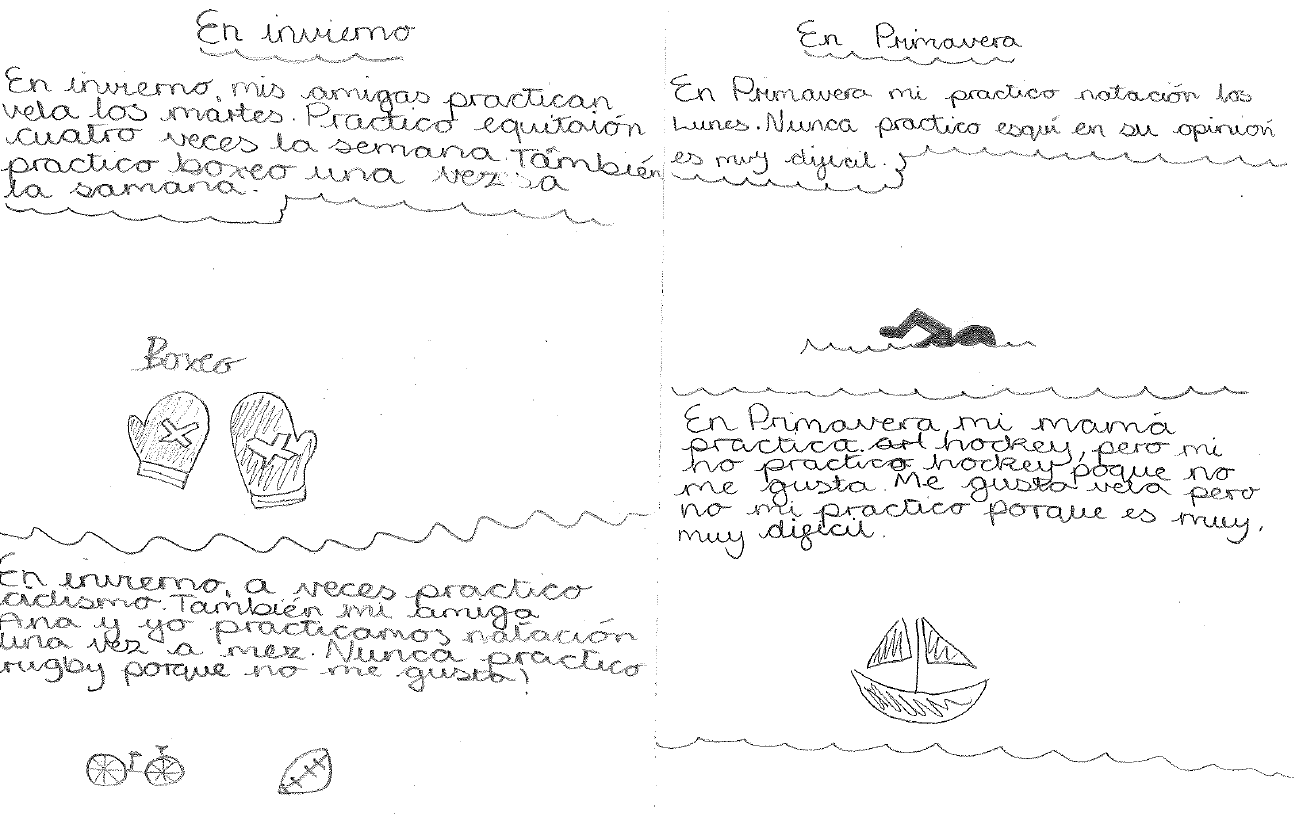 En invierno
En invierno, mis amigas practican
vela los martes. Practico equitaión
cuatro veces la semana. También
practico boxeo una vez sa
la samana.
Boxeo
En invierno, a veces practico
ciclismo. También mi amiga
Ana y yo practicamos natación
una vez a mez. Nunca practico
rugby porque no me gusta!
En Primavera
En Primavera mi practico natación los
Lunes. Nunca practico esquí en su opinión
es muy dificil.
En Primavera, mi mamá
practica art hockey, pero mi
no practico hockey poque no
me gusta. Me gusta vela pero
no mi practico porque es muy,
muy dificil.